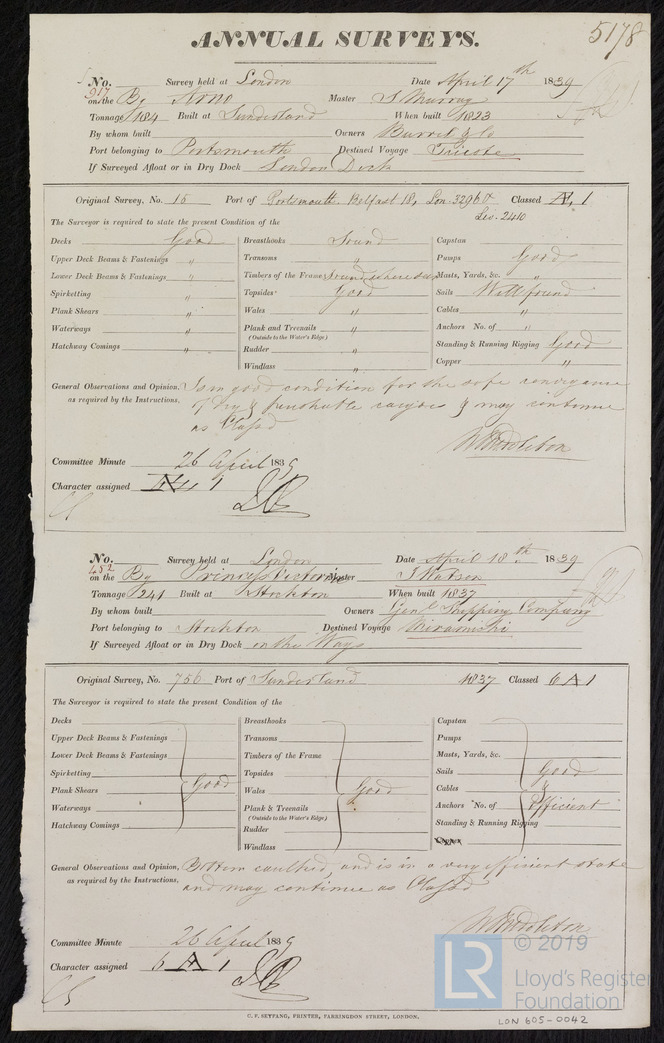 ANNUAL SURVEYS.
5178
No. Survey held at London Date April 17th 1839
917
on the Bg Arno Master J Murray
Tonnage 184 Built at Sunderland When built 1823
By whom built Owners Barret & Co
Port belonging to Portsmouth Destined Voyage Trieste
If Surveyed Afloat or in Dry Dock London Dock
Original Survey, No. 15 Port of Portsmouth Belfast 18, Lon. 3296 Classed Æ 1
Liv. 2410
The Surveyor is required to state the present Condition of the
Decks Good
Upper Deck Beams & Fastenings "
Lower Deck Beams & Fastenings "
Spirketting "
Plank Shears "
Waterways "
Hatchway Comings "
Breasthooks Sound
Transoms "
Timbers of the Frame Sound where seen
Topsides Good
Wales "
Plank and Treenails "
(Outside to the Water's Edge)
Rudder "
Windlass "
Capstan
Pumps Good
Masts, Yards, &c. "
Sails Well found
Cables "
Anchors No. of "
Standing & Running Rigging Good
Copper "
General Observations and Opinion, Is in good condition for the safe conveyance
as required by the Instructions. of dry & perishable cargoes & may continue
as Classed
W Middleton
Committee Minute 26 April 1839
Character assigned Æ 1
No. Survey held at London Date April 18th 1839
452
on the Bg Princess Victoria Master J Watson
Tonnage 241 Built at Stockton When built 1837
By whom built Owners Genl Shipping Company
Port belonging to Stockton Destined Voyage Miramichi
If Surveyed Afloat or in Dry Dock on the Ways
Original Survey, No. 756 Port of Sunderland 1837 Classed 6 A 1
The Surveyor is required to state the present Condition of the
Decks
Upper Deck Beams & Fastenings
Lower Deck Beams & Fastenings
Spirketting
Plank Shears Good
Waterways
Hatchway Comings
Breasthooks
Transoms
Timbers of the Frame
Topsides
Wales Good
Plank & Treenails
(Outside to the Water's Edge)
Rudder
Windlass
Capstan
Pumps
Masts, Yards, &c.
Sails Good
Cables &
Anchors No. of Efficient
Standing & Running Rigging
General Observations and Opinion, Bottom caulked, and is in a very efficient state
as required by the Instructions. and may continue as Classed
W Middleton
Committee Minute 26 April 1839
Character assigned 6 A 1
C. F. SEYFANG, PRINTER, FARRINGDON STREET, LONDON.
LR © 2019
Lloyd's Register
Foundation
LON 605-0042